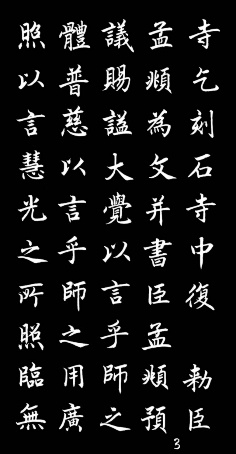 寺乞刻石寺中復 勅臣
孟頫為文并書臣孟頫預
議賜謚大覺以言乎師之
體普慈以言乎師之用廣
照以言慧光之所照臨無
3